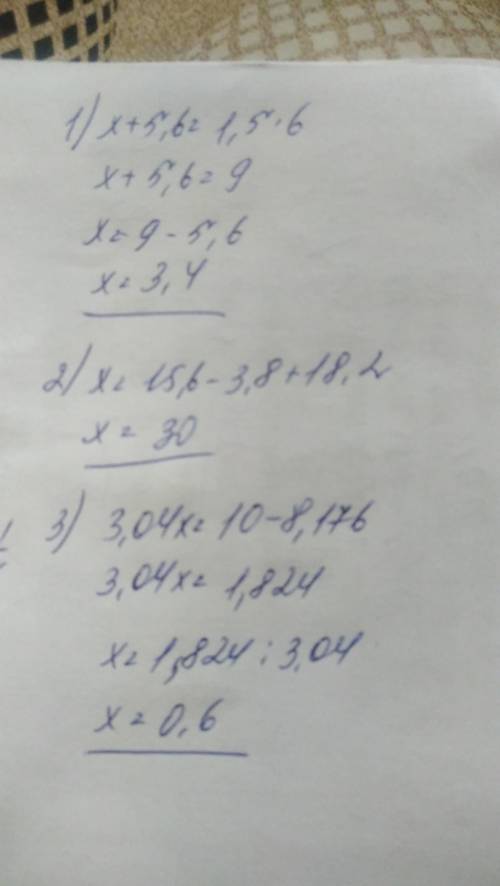 1) x+5,6=1,5·6
x+5,6=9
x=9-5,6
x=3,4
2) x=15,6-3,8+18,2
x=30
3) 3,04x=10-8,176
3,04x=1,824
x=1,824:3,04
x=0,6